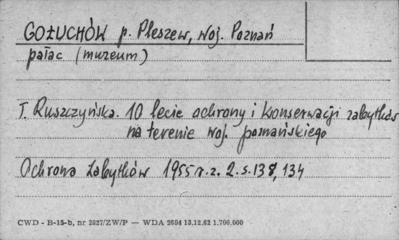 GOŁUCHÓW p. Pleszew, woj. Poznań
pałac (muzeum)
T. Ruszczyńska. 10 lecie ochrony i konserwacji zabytków
na terenie woj. poznańskiego
Ochrona Zabytków 1955 r. z. 2. s. 138, 134
CWD - B-15-b, nr 2827/ZW/P — WDA 2604 13.12.62 1.700.000